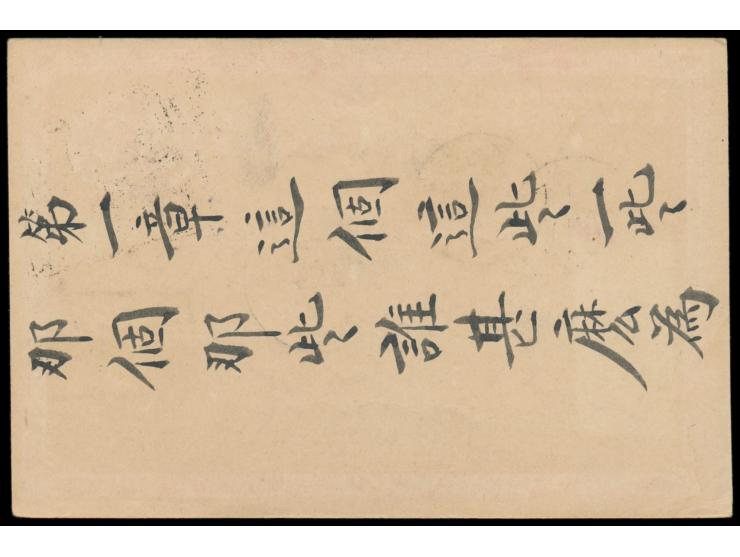 第一章這個這些一些
那個那些誰甚麽為